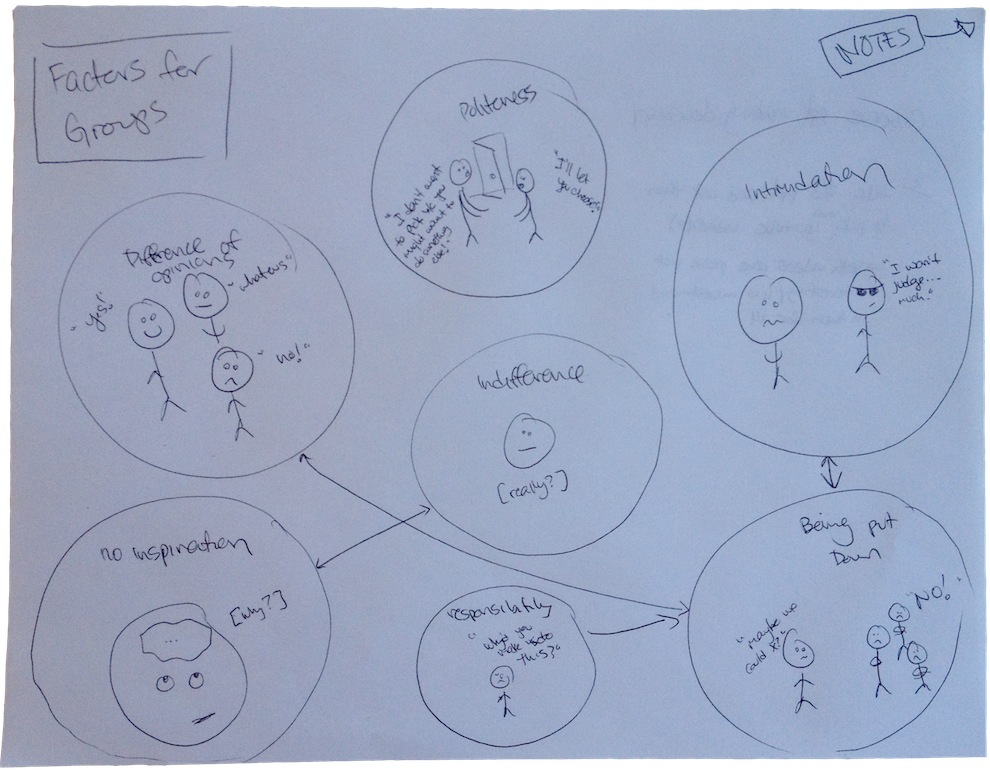 Factors for
Groups
NOTES
Politeness
"I don't want
to pick b/c you
might want to
do something
else!"
"I'll let
you choose!"
Intimidation
"I won't
judge...
much."
Difference of
opinions
"yes!"
"whatevs"
"no!"
Indifference
[really?]
no inspiration
[why?]
...
responsibility
"why'd you
make us do
this?"
Being put
Down
"maybe we
could x?"
"NO!"